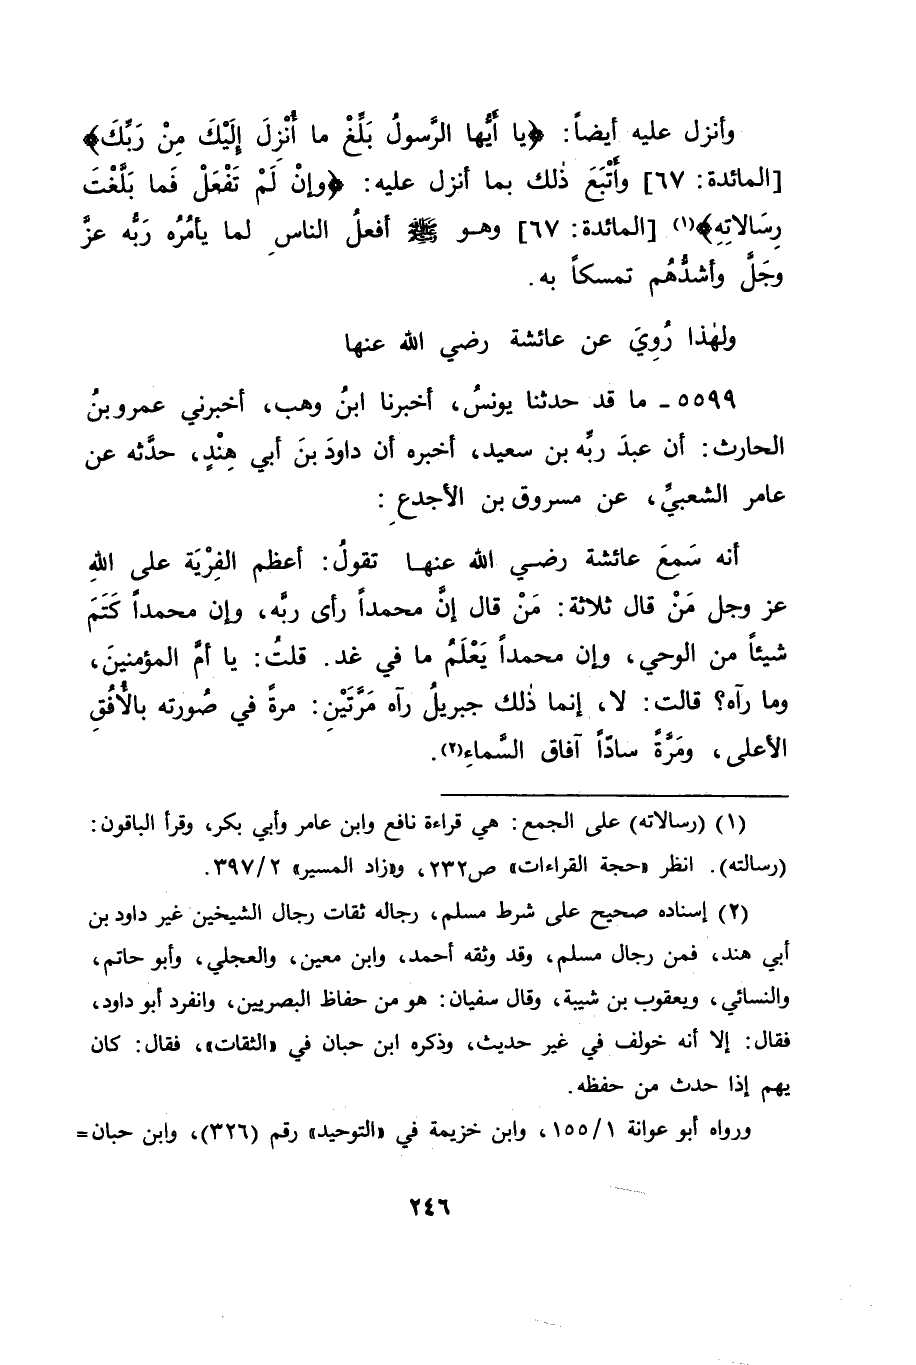 وأنزل عليه أيضاً: ﴿يا أَيُّها الرَّسولُ بَلِّغْ ما أُنْزِلَ إِلَيْكَ مِنْ رَبِّكَ﴾
[المائدة: ٦٧] وأَتْبَعَ ذٰلك بما أنزل عليه: ﴿وإنْ لَمْ تَفْعَلْ فَما بَلَّغْتَ
رِسَالاتِهِ﴾(١) [المائدة: ٦٧] وهـو ﷺ أفعلُ الناسِ لما يأمُرُه رَبُّه عزَّ
وجَلَّ وأشدُّهُم تمسكاً به.
ولهٰذا رُوِيَ عن عائشة رضي الله عنها
٥٥٩٩ ـ ما قد حدثنا يونسُ، أخبرنا ابنُ وهب، أخبرني عمرو بنُ
الحارث: أن عبدَ ربِّه بن سعيد، أخبره أن داودَ بنَ أبي هِنْدٍ، حدَّثه عن
عامر الشعبيِّ، عن مسروق بن الأجدعِ:
أنه سَمِعَ عائشة رضـي الله عنهـا تقولُ: أعظم الفِرْيَة على اللهِ
عز وجل مَنْ قال ثلاثة: مَنْ قال إنَّ محمداً رأى ربَّه، وإن محمداً كَتَمَ
شيئاً من الوحي، وإن محمداً يَعْلَمُ ما في غد. قلتُ: يا أمَّ المؤمنينَ،
وما رآه؟ قالت: لا، إنما ذٰلك جبريلُ رآه مَرَّتَيْنِ: مرةً في صُورته بالأُفُقِ
الأعلى، ومَرَّةً سادّاً آفاق السَّماءِ(٢).
(١) (رسالاته) على الجمع: هي قراءة نافع وابن عامر وأبي بكر، وقرأ الباقون:
(رسالته). انظر «حجة القراءات» ص٢٣٢، و«زاد المسير» ٣٩٧/٢.
(٢) إسناده صحيح على شرط مسلم، رجاله ثقات رجال الشيخين غير داود بن
أبي هند، فمن رجال مسلم، وقد وثقه أحمد، وابن معين، والعجلي، وأبو حاتم،
والنسائي، ويعقوب بن شيبة، وقال سفيان: هو من حفاظ البصريين، وانفرد أبو داود،
فقال: إلا أنه خولف في غير حديث، وذكره ابن حبان في «الثقات»، فقال: كان
يهم إذا حدث من حفظه.
ورواه أبو عوانة ١٥٥/١، وابن خزيمة في «التوحيد» رقم (٣٢٦)، وابن حبان=
٢٤٦